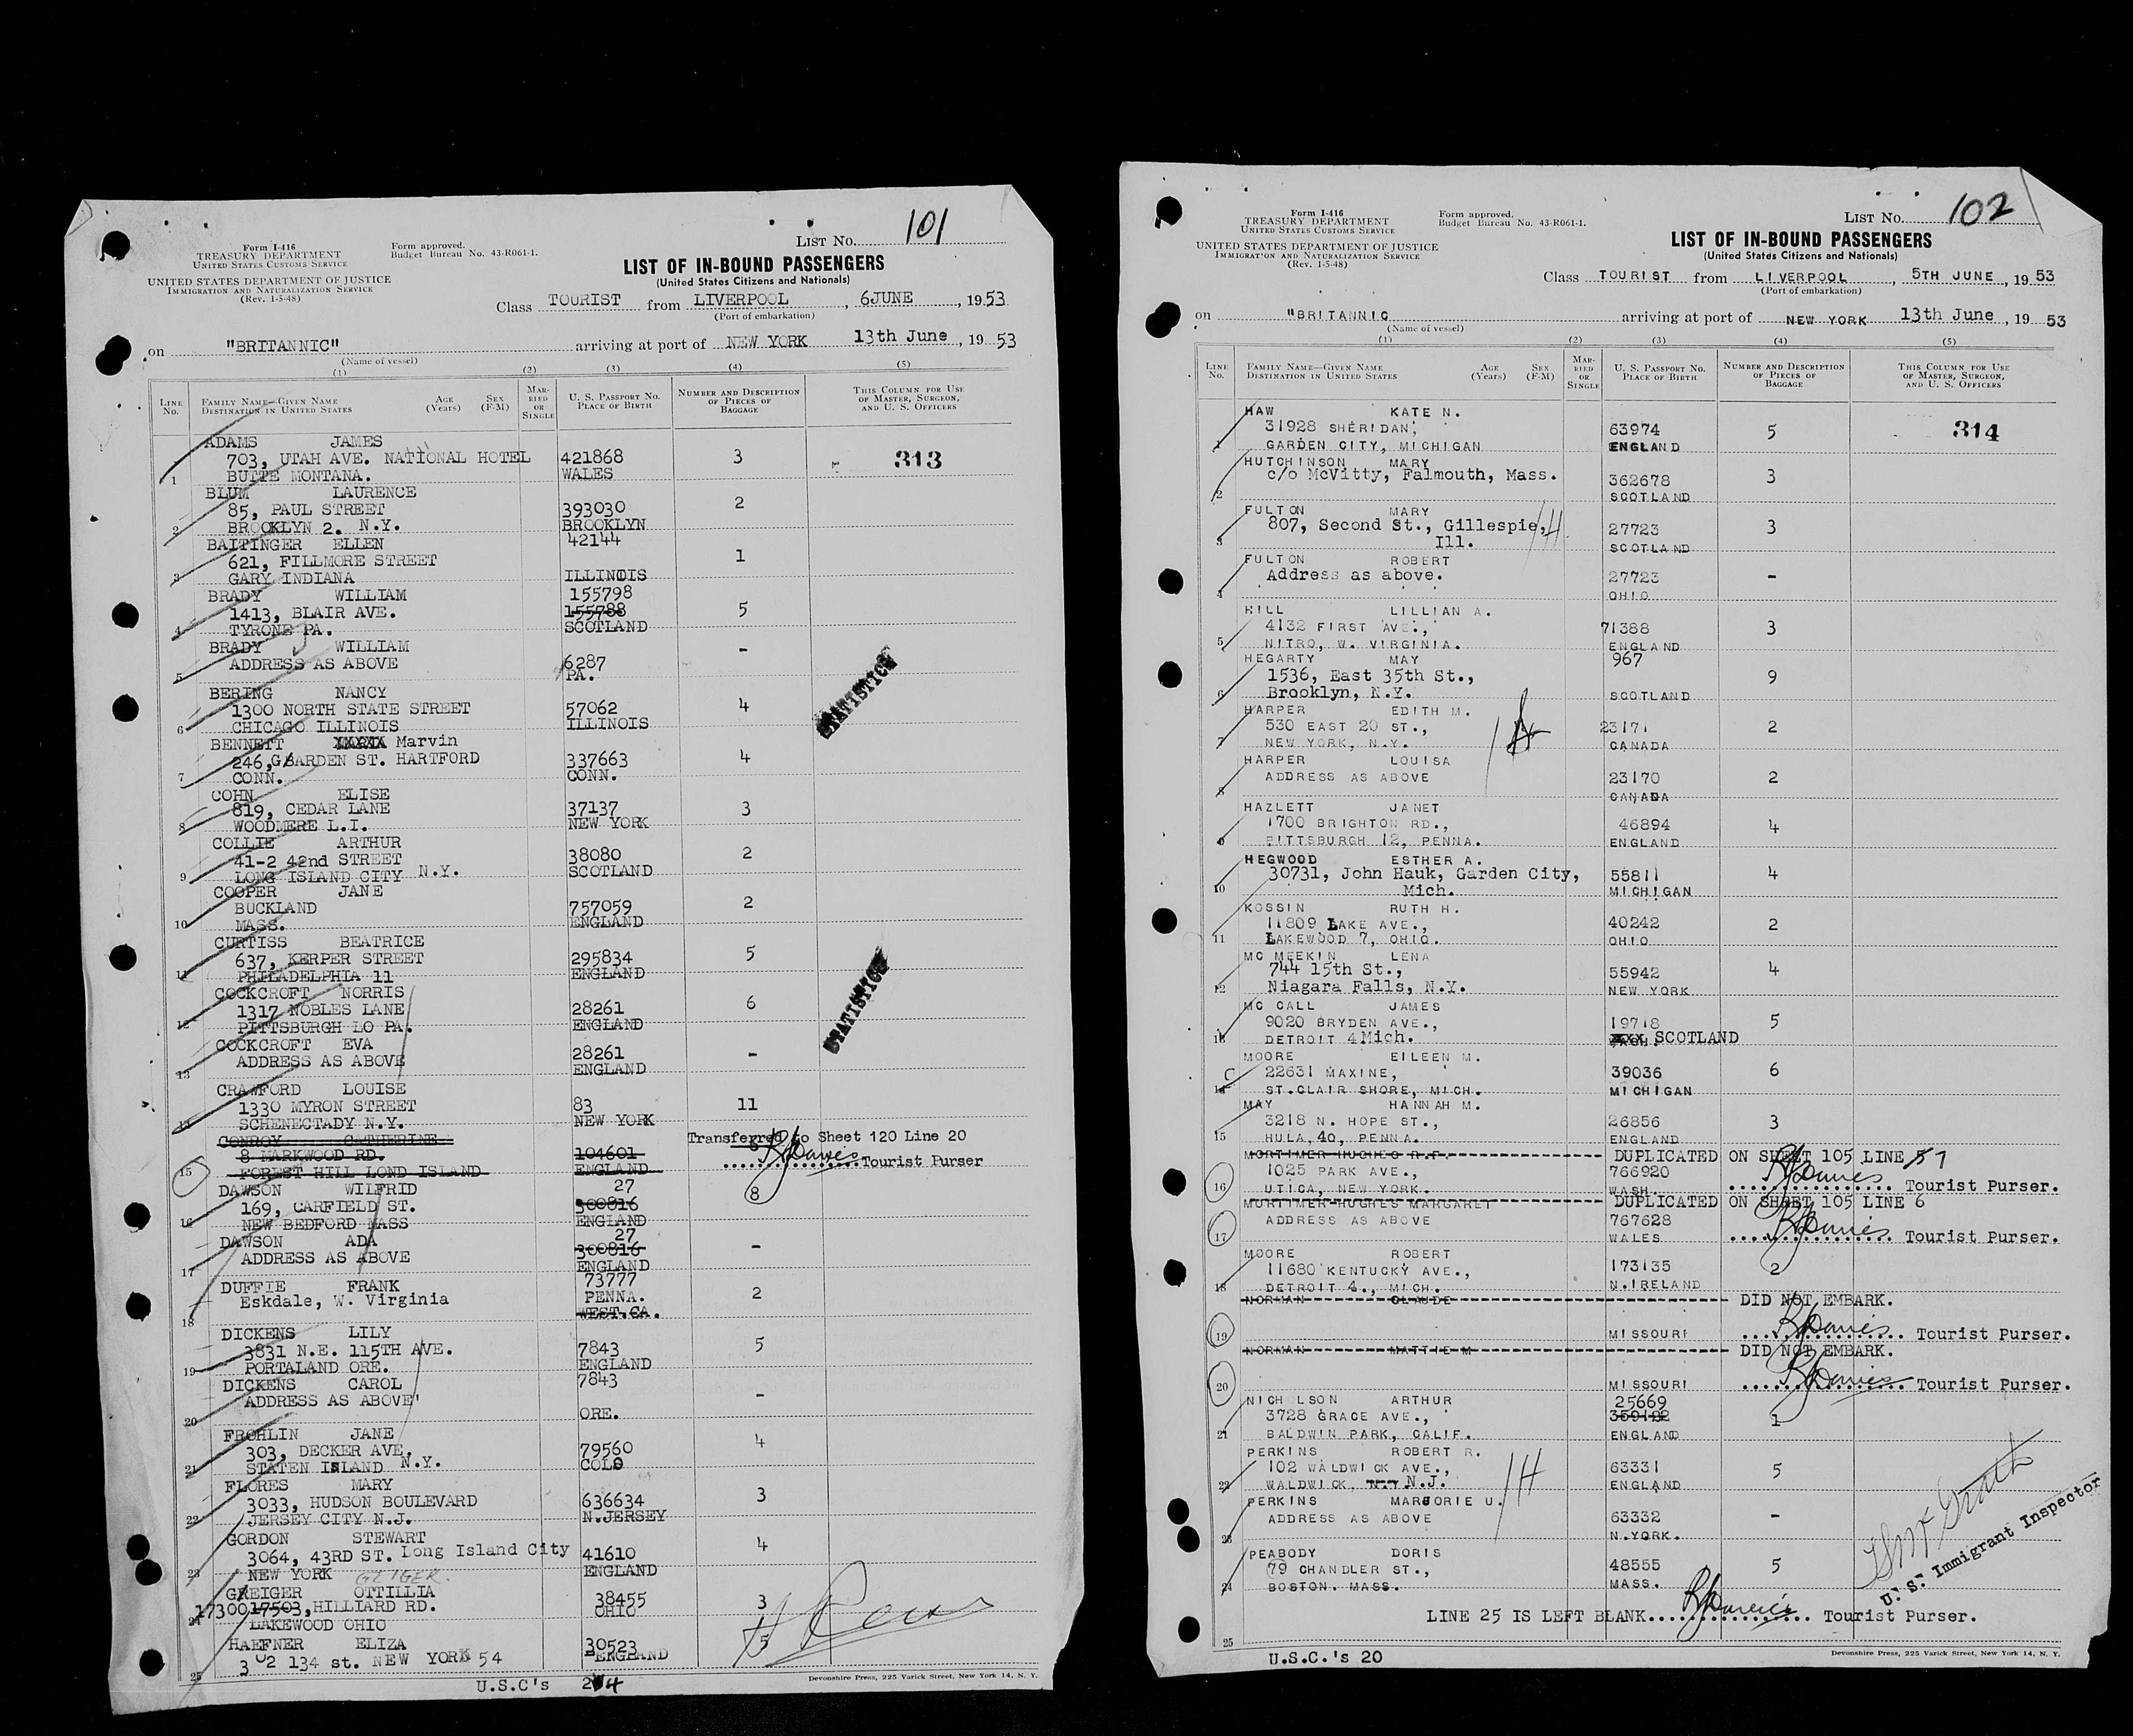 LIST No. 101
Form I-416
TREASURY DEPARTMENT
UNITED STATES CUSTOMS SERVICE
Form approved.
Budget Bureau No. 43-R061-1.
UNITED STATES DEPARTMENT OF JUSTICE
IMMIGRATION AND NATURALIZATION SERVICE
(Rev. 1-5-48)
LIST OF IN-BOUND PASSENGERS
(United States Citizens and Nationals)
Class TOURIST from LIVERPOOL, 6JUNE, 1953
(Port of embarkation)
on "BRITANNIC" arriving at port of NEW YORK 13th June, 1953
(Name of vessel)
(1) (2) (3) (4) (5)
LINE No. FAMILY NAME—GIVEN NAME DESTINATION IN UNITED STATES AGE (Years) SEX (F-M) MARRIED OR SINGLE U. S. PASSPORT NO. PLACE OF BIRTH NUMBER AND DESCRIPTION OF PIECES OF BAGGAGE THIS COLUMN FOR USE OF MASTER, SURGEON, AND U. S. OFFICERS
ADAMS JAMES
703, UTAH AVE. NATIONAL HOTEL 421868 3 313
1 BUTTE MONTANA. WALES
BLUM LAURENCE
85, PAUL STREET 393030 2
2 BROOKLYN 2. N.Y. BROOKLYN
BAITINGER ELLEN 42144
621, FILLMORE STREET 1
3 GARY INDIANA ILLINOIS
BRADY WILLIAM 155798
1413, BLAIR AVE. 155788 5
4 TYRONE PA. SCOTLAND
BRADY WILLIAM
ADDRESS AS ABOVE 6287 -
5 PA.
BERING NANCY
1300 NORTH STATE STREET 57062 4
6 CHICAGO ILLINOIS ILLINOIS
STATISTICS
BENNETT Marvin
246, GARDEN ST. HARTFORD 337663 4
7 CONN. CONN.
COHN ELISE
819, CEDAR LANE 37137 3
8 WOODMERE L.I. NEW YORK
COLLIE ARTHUR
41-2 42nd STREET 38080 2
9 LONG ISLAND CITY N.Y. SCOTLAND
COOPER JANE
BUCKLAND 757059 2
10 MASS. ENGLAND
CURTISS BEATRICE
637, KERPER STREET 295834 5
11 PHILADELPHIA 11 ENGLAND
COCKCROFT NORRIS
1317 NOBLES LANE 28261 6
12 PITTSBURGH LO PA. ENGLAND
STATISTICS
COCKCROFT EVA
ADDRESS AS ABOVE 28261 -
13 ENGLAND
CRAWFORD LOUISE
1330 MYRON STREET 83 11
14 SCHENECTADY N.Y. NEW YORK
CONROY CATHERINE Transferred to Sheet 120 Line 20
8 MARKWOOD RD. 104601 RJDavies
15 FOREST HILL LOND ISLAND ENGLAND Tourist Purser
DAWSON WILFRID 27
169, CARFIELD ST. 300816 8
16 NEW BEDFORD MASS ENGLAND
DAWSON ADA 27
ADDRESS AS ABOVE 300816 -
17 ENGLAND
DUFFIE FRANK 73777
Eskdale, W. Virginia PENNA. 2
18 WEST.CA.
DICKENS LILY
3831 N.E. 115TH AVE. 7843 5
19 PORTALAND ORE. ENGLAND
DICKENS CAROL 7843
ADDRESS AS ABOVE' -
20 ORE.
FROHLIN JANE
303, DECKER AVE. 79560 4
21 STATEN ISLAND N.Y. COLO
FLORES MARY
3033, HUDSON BOULEVARD 636634 3
22 JERSEY CITY N.J. N.JERSEY
GORDON STEWART
3064, 43RD ST. Long Island City 41610 4
23 NEW YORK ENGLAND
GEIGER.
GREIGER OTTILLIA 38455 3
17300 17503, HILLIARD RD. OHIO
24 LAKEWOOD OHIO
HAEFNER ELIZA 30523 5
25 3 02 134 st. NEW YORK 54 ENGLAND
U.S.C's 24
Devonshire Press, 225 Varick Street, New York 14, N. Y.
LIST No. 102
Form I-416
TREASURY DEPARTMENT
UNITED STATES CUSTOMS SERVICE
Form approved.
Budget Bureau No. 43-R061-1.
UNITED STATES DEPARTMENT OF JUSTICE
IMMIGRATION AND NATURALIZATION SERVICE
(Rev. 1-5-48)
LIST OF IN-BOUND PASSENGERS
(United States Citizens and Nationals)
Class TOURIST from LIVERPOOL, 5TH JUNE, 1953
(Port of embarkation)
on "BRITANNIC arriving at port of NEW YORK 13th June, 1953
(Name of vessel)
(1) (2) (3) (4) (5)
LINE No. FAMILY NAME—GIVEN NAME DESTINATION IN UNITED STATES AGE (Years) SEX (F-M) MARRIED OR SINGLE U. S. PASSPORT NO. PLACE OF BIRTH NUMBER AND DESCRIPTION OF PIECES OF BAGGAGE THIS COLUMN FOR USE OF MASTER, SURGEON, AND U. S. OFFICERS
HAW KATE N.
31928 SHERIDAN, 63974 5 314
1 GARDEN CITY, MICHIGAN ENGLAND
HUTCHINSON MARY
c/o McVitty, Falmouth, Mass. 362678 3
2 SCOTLAND
FULTON MARY
807, Second St., Gillespie, 27723 3
3 Ill. SCOTLAND
FULTON ROBERT
Address as above. 27723 -
4 OHIO
HILL LILLIAN A.
4132 FIRST AVE., 71388 3
5 NITRO, W. VIRGINIA. ENGLAND
HEGARTY MAY 967
1536, East 35th St., 9
6 Brooklyn, N.Y. SCOTLAND
HARPER EDITH M.
530 EAST 20 ST., 23171 2
7 NEW YORK, N.Y. CANADA
HARPER LOUISA
ADDRESS AS ABOVE 23170 2
8 CANADA
HAZLETT JANET
1700 BRIGHTON RD., 46894 4
9 PITTSBURGH 12, PENNA. ENGLAND
HEGWOOD ESTHER A.
30731, John Hauk, Garden City, 55811 4
10 Mich. MICHIGAN
KOSSIN RUTH H.
11809 LAKE AVE., 40242 2
11 LAKEWOOD 7, OHIO. OHIO
MC MEEKIN LENA
744 15th St., 55942 4
12 Niagara Falls, N.Y. NEW YORK
MC CALL JAMES
9020 BRYDEN AVE., 19718 5
13 DETROIT 4 Mich. SCOTLAND
MOORE EILEEN M.
C 22631 MAXINE, 39036 6
14 ST.CLAIR SHORE, MICH. MICHIGAN
MAY HANNAH M.
3218 N. HOPE ST., 26856 3
15 HULA,40, PENNA. ENGLAND
MORTIMER-HUGHES R.F. DUPLICATED ON SHEET 105 LINE 57
1025 PARK AVE., 766920 RJDavies
16 UTICA, NEW YORK. WASH. Tourist Purser.
MORTIMER-HUGHES MARGARET DUPLICATED ON SHEET 105 LINE 6
ADDRESS AS ABOVE 767628 RJDavies
17 WALES Tourist Purser.
MOORE ROBERT
11680 KENTUCKY AVE., 173135 2
18 DETROIT 4., MICH. N.IRELAND
NORMAN CLAUDE DID NOT EMBARK.
19 MISSOURI RJDavies Tourist Purser.
NORMAN MATTIE M DID NOT EMBARK.
20 MISSOURI RJDavies Tourist Purser.
NICHOLSON ARTHUR 25669
3728 GRACE AVE., 359192 1
21 BALDWIN PARK, CALIF. ENGLAND
PERKINS ROBERT R.
102 WALDWICK AVE., 63331 5
22 WALDWICK, N.J. ENGLAND
PERKINS MARJORIE U.
ADDRESS AS ABOVE 63332 -
23 N.YORK.
PEABODY DORIS
79 CHANDLER ST., 48555 5
24 BOSTON. MASS. MASS.
U. S. Immigrant Inspector
LINE 25 IS LEFT BLANK RJDavies Tourist Purser.
25
U.S.C.'s 20
Devonshire Press, 225 Varick Street, New York 14, N. Y.